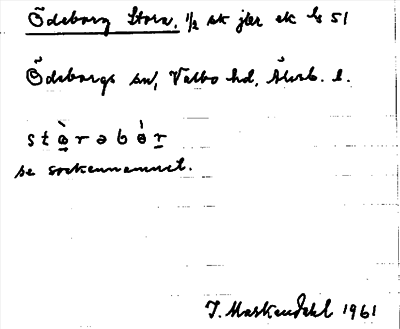 Ödeborg Stora, 1/2 sk jbr ek ls 51
Ödeborgs sn, Valbo hd, Älvsb. l.
se sockennamnet.
J. Markendahl 1961